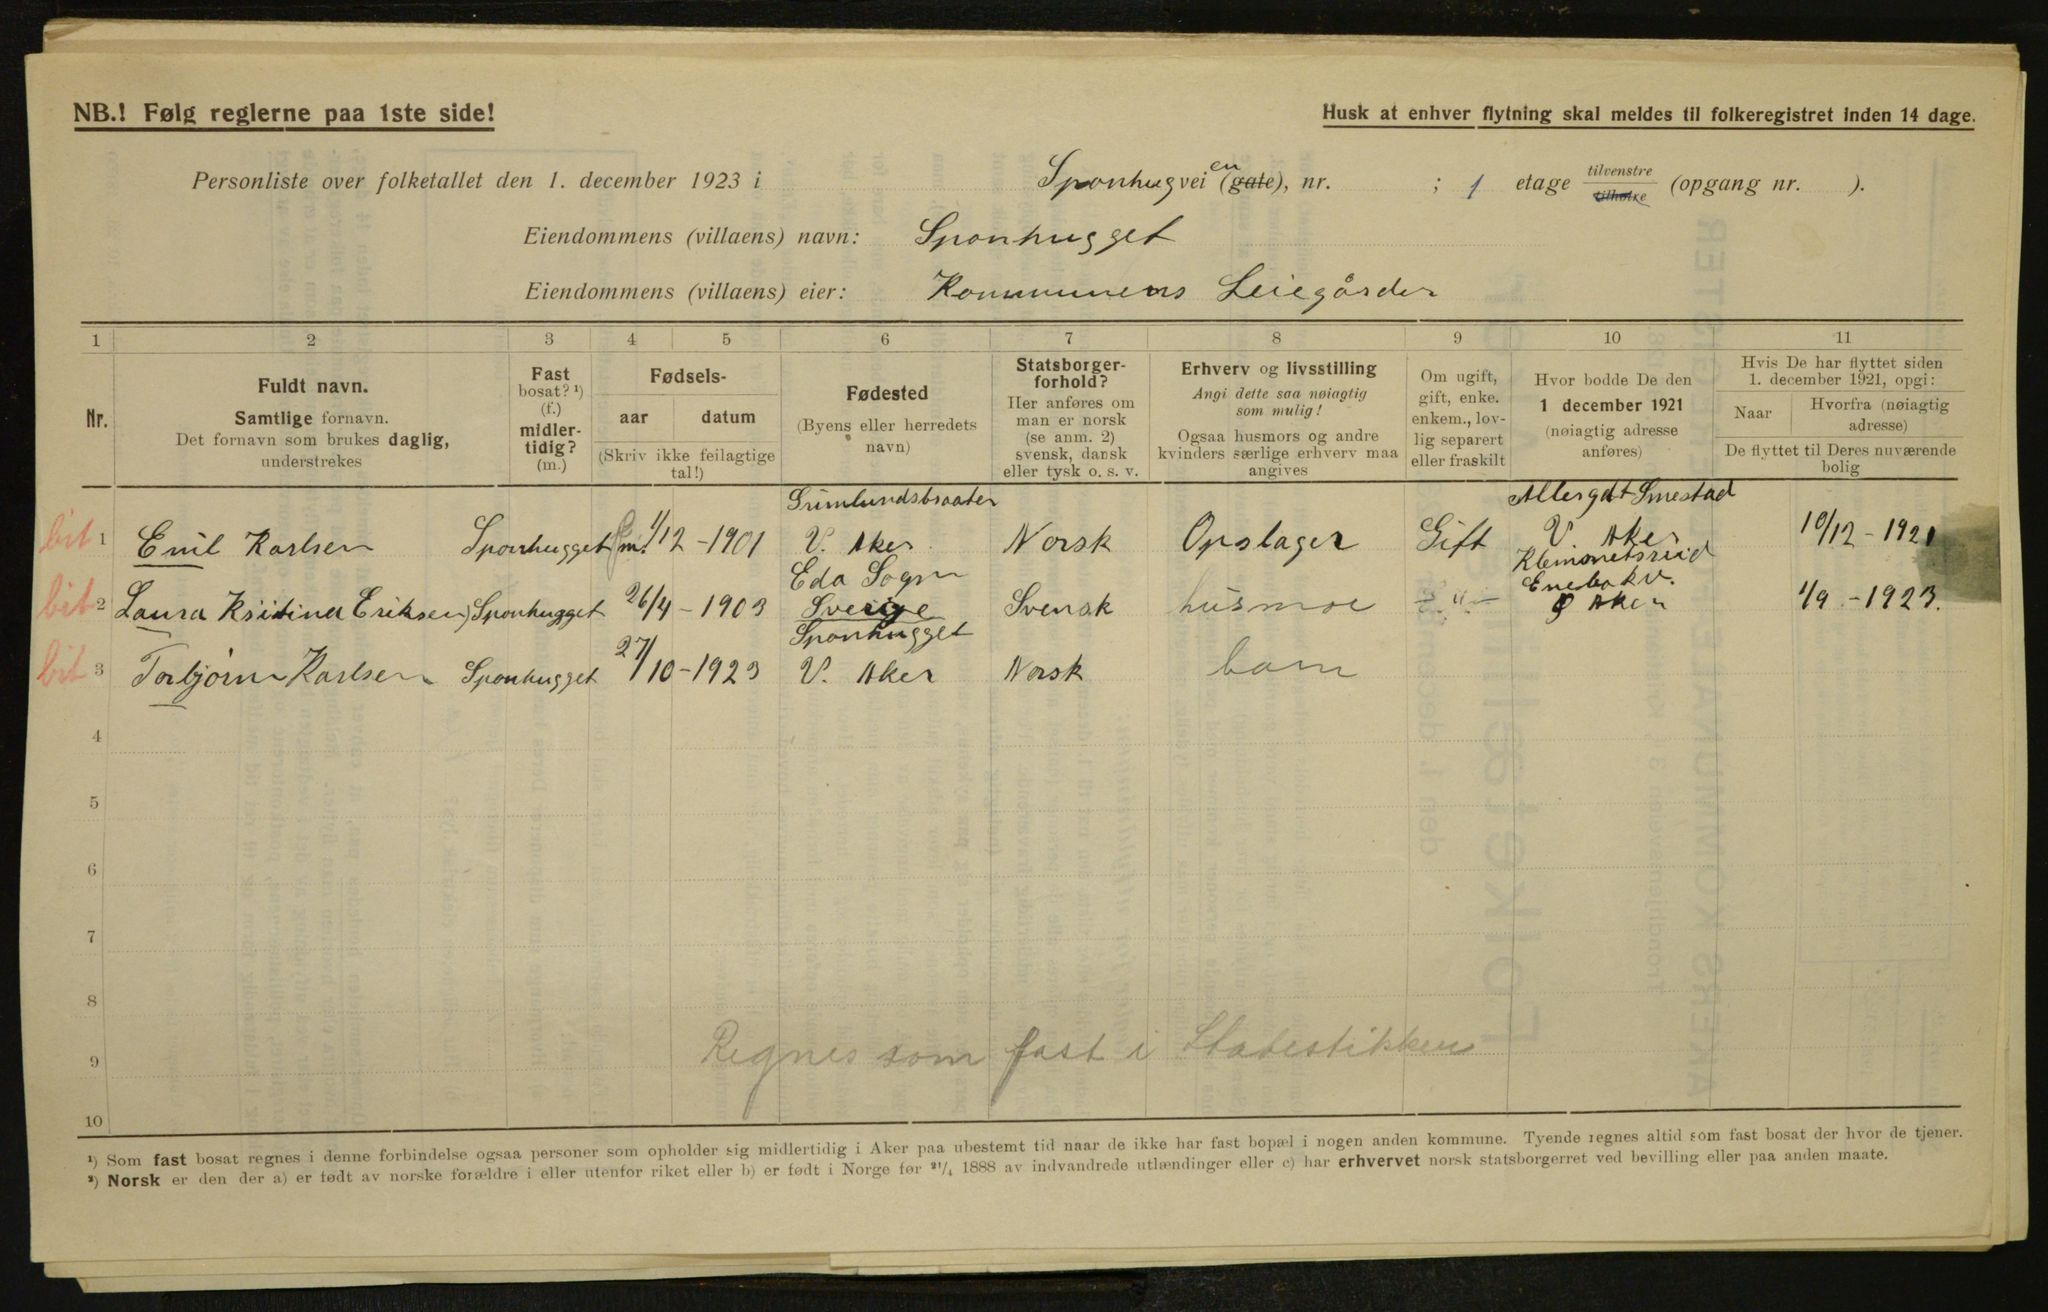 NB.! Følg reglerne paa 1ste side!
Husk at enhver flytning skal meldes til folkeregistret inden 14 dage.
Personliste over folketallet den 1. december 1923 i Sponhugveien (gate), nr. ; 1 etage tilvenstre tilhøire (opgang nr. ).
Eiendommens (villaens) navn: Sponhugget
Eiendommens (villaens) eier: Kommunens Leiegårder
1 2 3 4 5 6 7 8 9 10 11
Nr.
Fuldt navn.
Samtlige fornavn.
Det fornavn som brukes daglig,
understrekes
Fast
bosat? ¹)
(f.)
midler-
tidig?
(m.)
Fødsels-
aar datum
(Skriv ikke feilagtige
tal!)
Fødested
(Byens eller herredets
navn)
Statsborger-
forhold?
Her anføres om
man er norsk
(se anm. 2)
svensk, dansk
eller tysk o. s. v.
Erhverv og livsstilling
Angi dette saa nøiagtig
som mulig!
Ogsaa husmors og andre
kvinders særlige erhverv maa
angives
Om ugift,
gift, enke.
enkem., lov-
lig separert
eller fraskilt
Hvor bodde De den
1 december 1921
(nøiagtig adresse
anføres)
Hvis De har flyttet siden
1. december 1921, opgi:
Naar
Hvorfra (nøiagtig
adresse)
De flyttet til Deres nuværende
bolig
Grimlundsbraaten Smestad
bit 1 Emil Karlsen Sponhugget m! 1/12 - 1901 V. Aker Norsk Opslager Gift V. Aker 10/12 - 1921
Eda Sogn Klemmetsrud
Enebakv.
bit 2 Laura Kristina Eriksen) Sponhugget 26/4 - 1903 Sverige Svensk husmor - " - Ø Aker 1/9 - 1923.
Sponhugget
bit 3 Torbjørn Karlsen Sponhugget 27/10 - 1923 V. Aker Norsk barn
4
5
6
7
8
9 Regnes som fast i Statestikken
10
¹) Som fast bosat regnes i denne forbindelse ogsaa personer som opholder sig midlertidig i Aker paa ubestemt tid naar de ikke har fast bopæl i nogen anden kommune. Tyende regnes altid som fast bosat der hvor de tjener.
²) Norsk er den der a) er født av norske forældre i eller utenfor riket eller b) er født i Norge før ²¹/₄ 1888 av indvandrede utlændinger eller c) har erhvervet norsk statsborgerret ved bevilling eller paa anden maate.